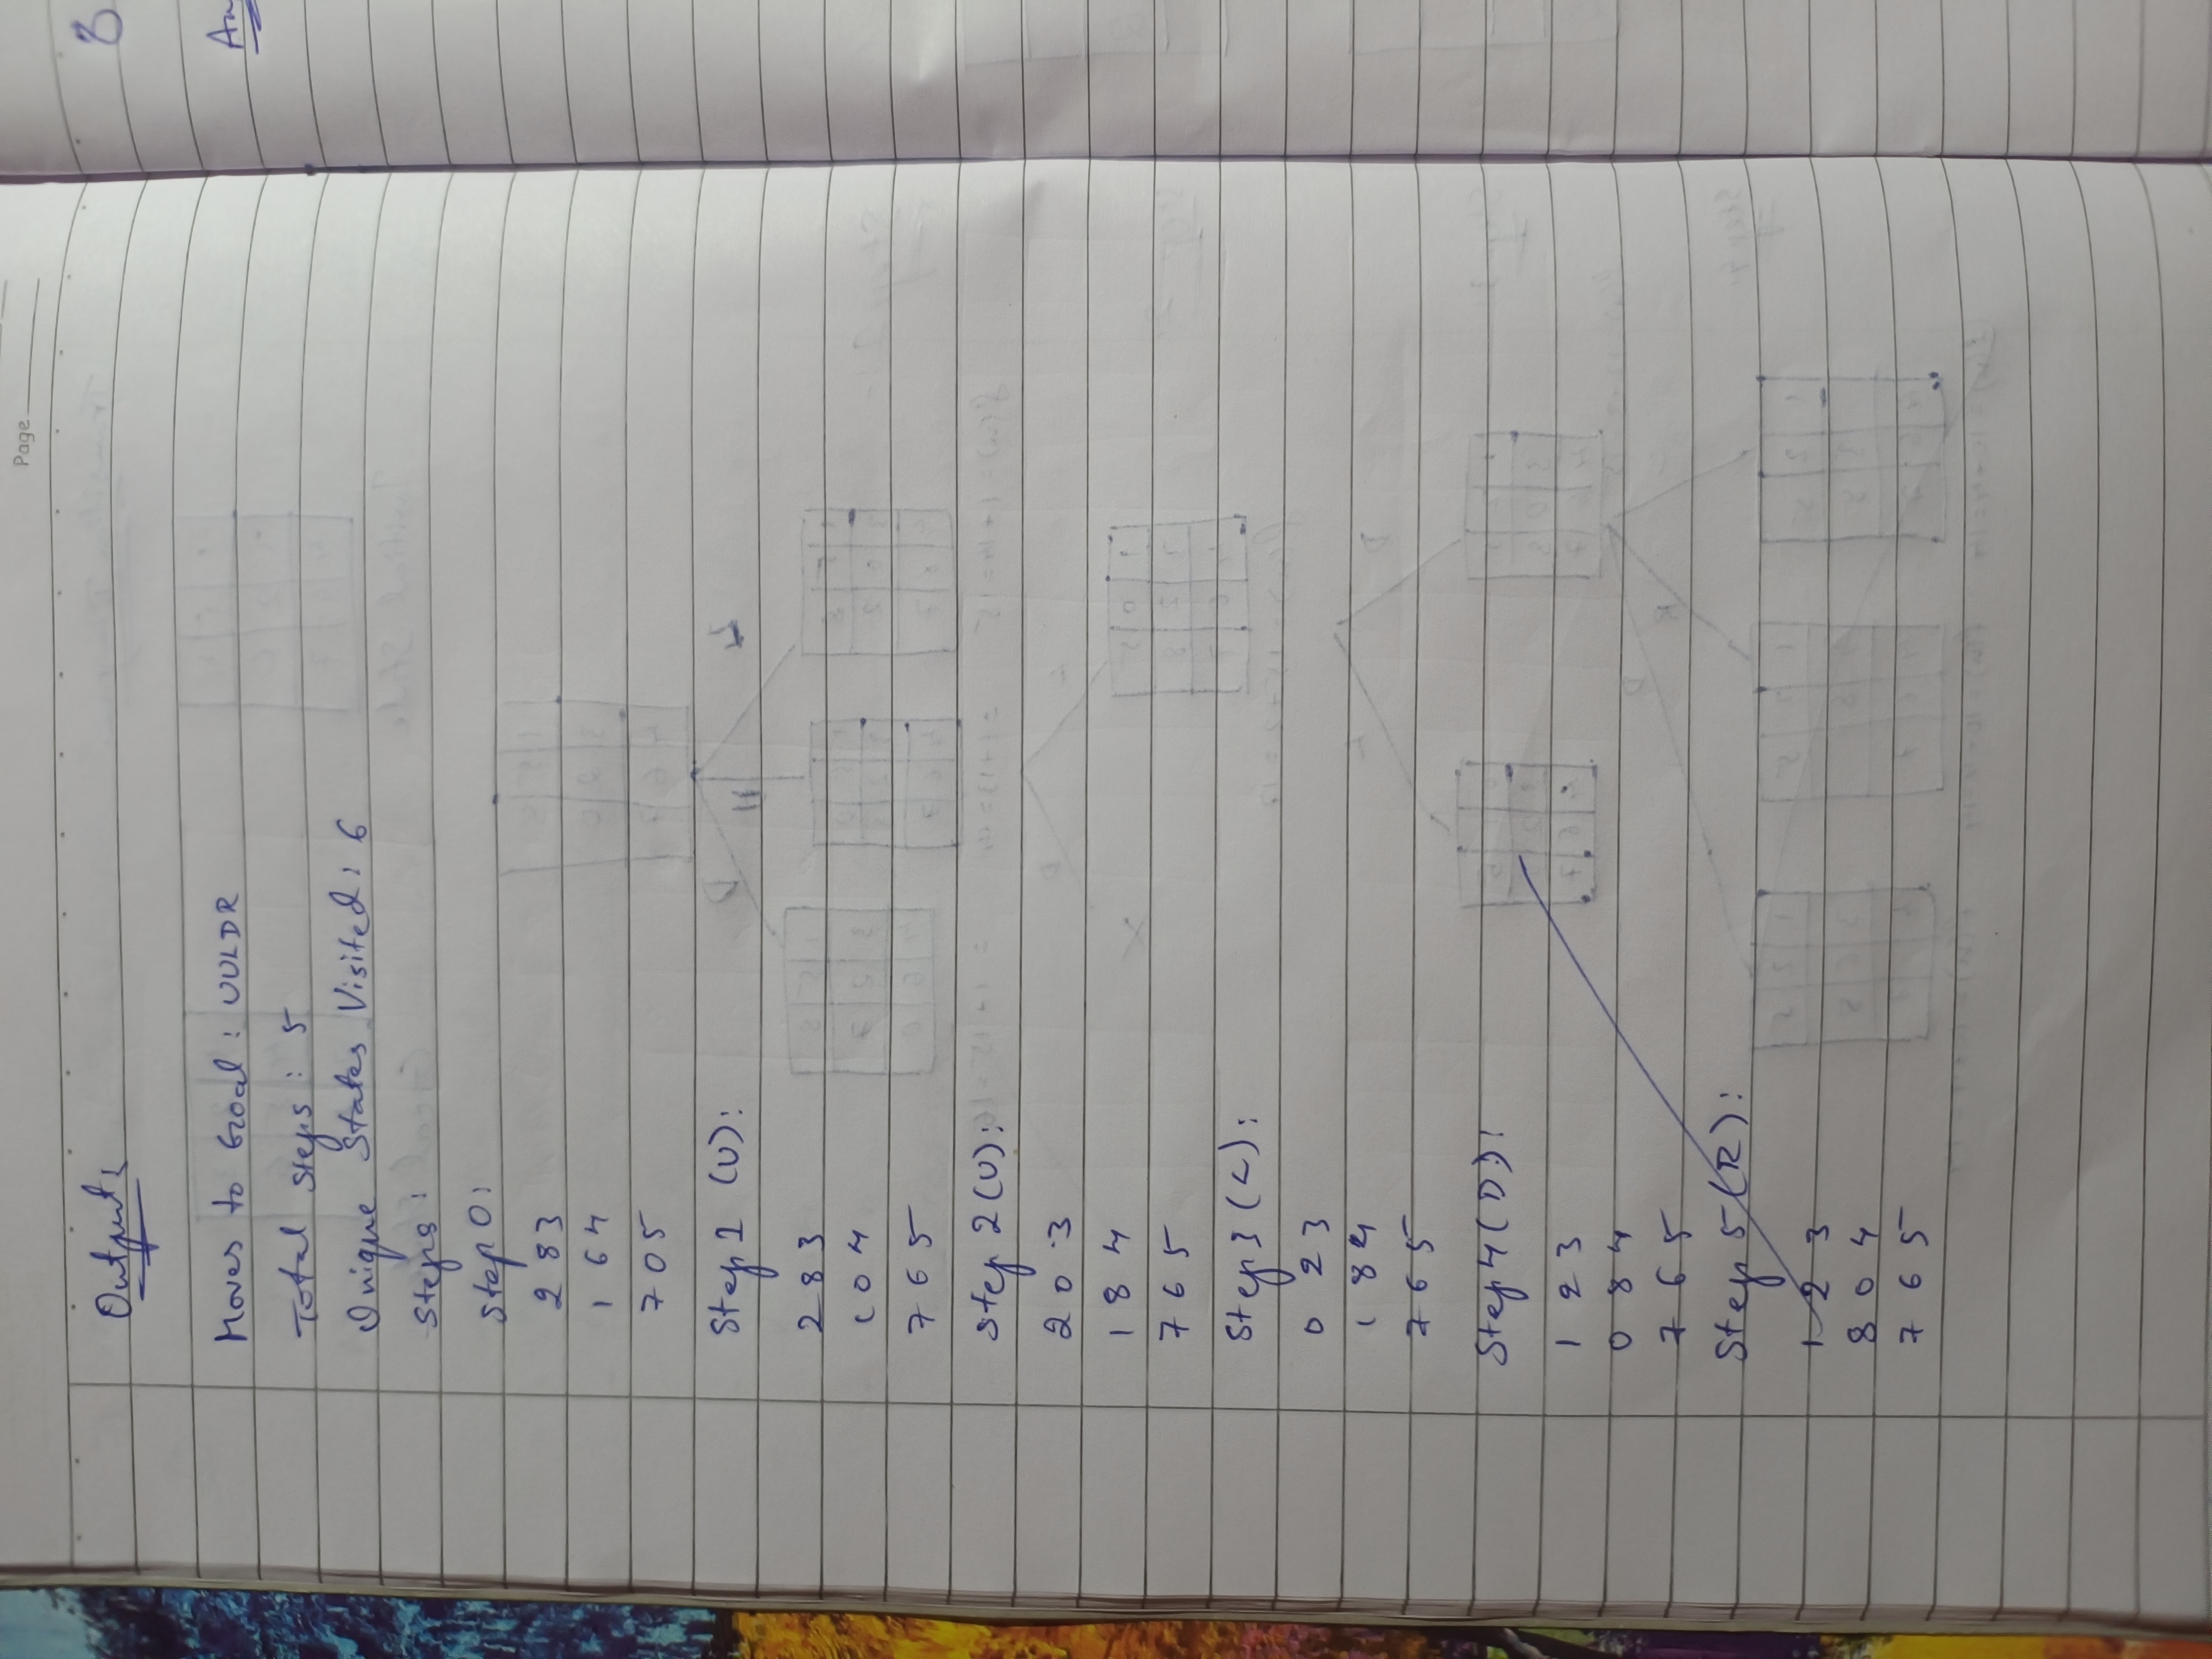 Page
Output:
Moves to Goal: UULDR
Total steps: 5
Unique States Visited: 6
Steps:
Step 0:
2 8 3
1 6 4
7 0 5
Step 1 (U):
2 8 3
1 0 4
7 6 5
Step 2 (U):
2 0 3
1 8 4
7 6 5
Step 3 (L):
0 2 3
1 8 4
7 6 5
Step 4 (D):
1 2 3
0 8 4
7 6 5
Step 5 (R):
1 2 3
8 0 4
7 6 5
3
An